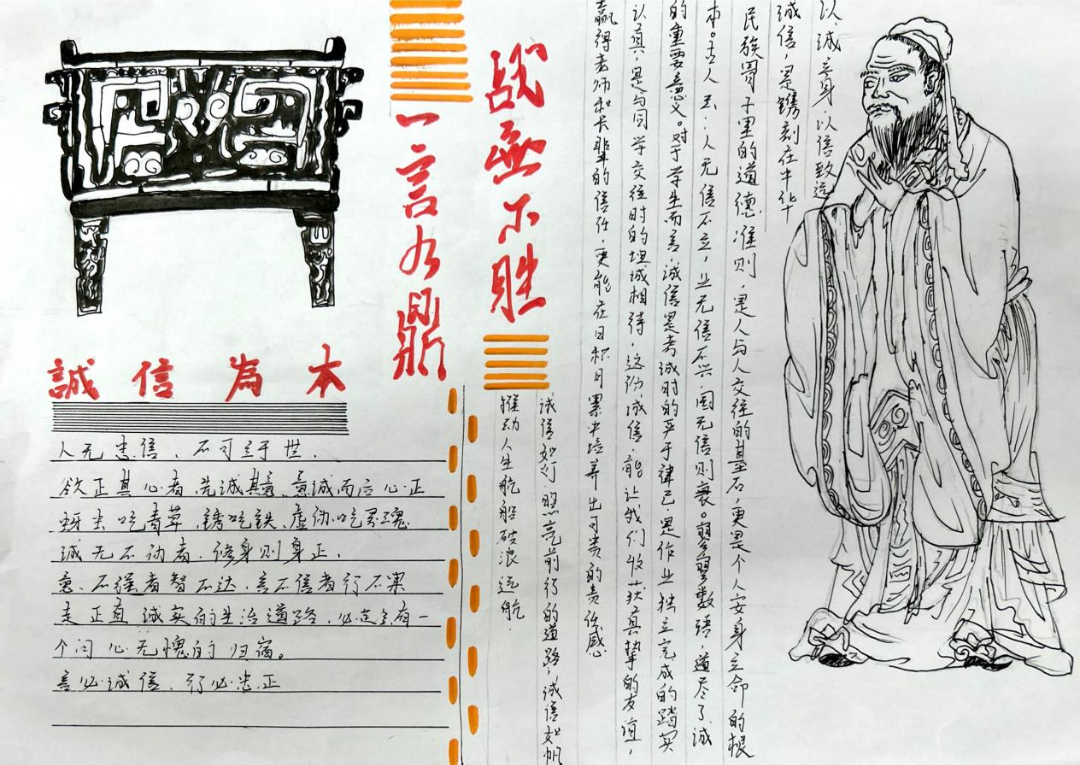 以诚立身以信致远
诚信，是镌刻在中华
民族骨子里的道德准则，是人与人交往的基石，更是个人安身立命的根
本。古人云：人无信不立，业无信不兴，国无信则衰。寥寥数语，道尽了诚
的重要意义。对于学生而言，诚信是考试时的严于律己，是作业独立完成的踏实
认真，是与同学交往时的坦诚相待，这份诚信，能让我们收获真挚的友谊，
赢得老师和长辈的信任，更能在日积月累中培养出可贵的责任感
诚信如灯，照亮前行的道路，诚信如帆
推动人生航船破浪远航.
战无不胜
一言九鼎
誠信為本
人无忠信，不可立于世，
欲正其心者，先诚其意，意诚而后心正
蚜虫吃青草，锈吃铁，虚伪吃灵魂
诚无不动者，修身则身正，
意，不强者智不达，言不信者行不果
走正直诚实的生活道路，必定会有一
个问心无愧的归宿。
言必诚信，行必忠正